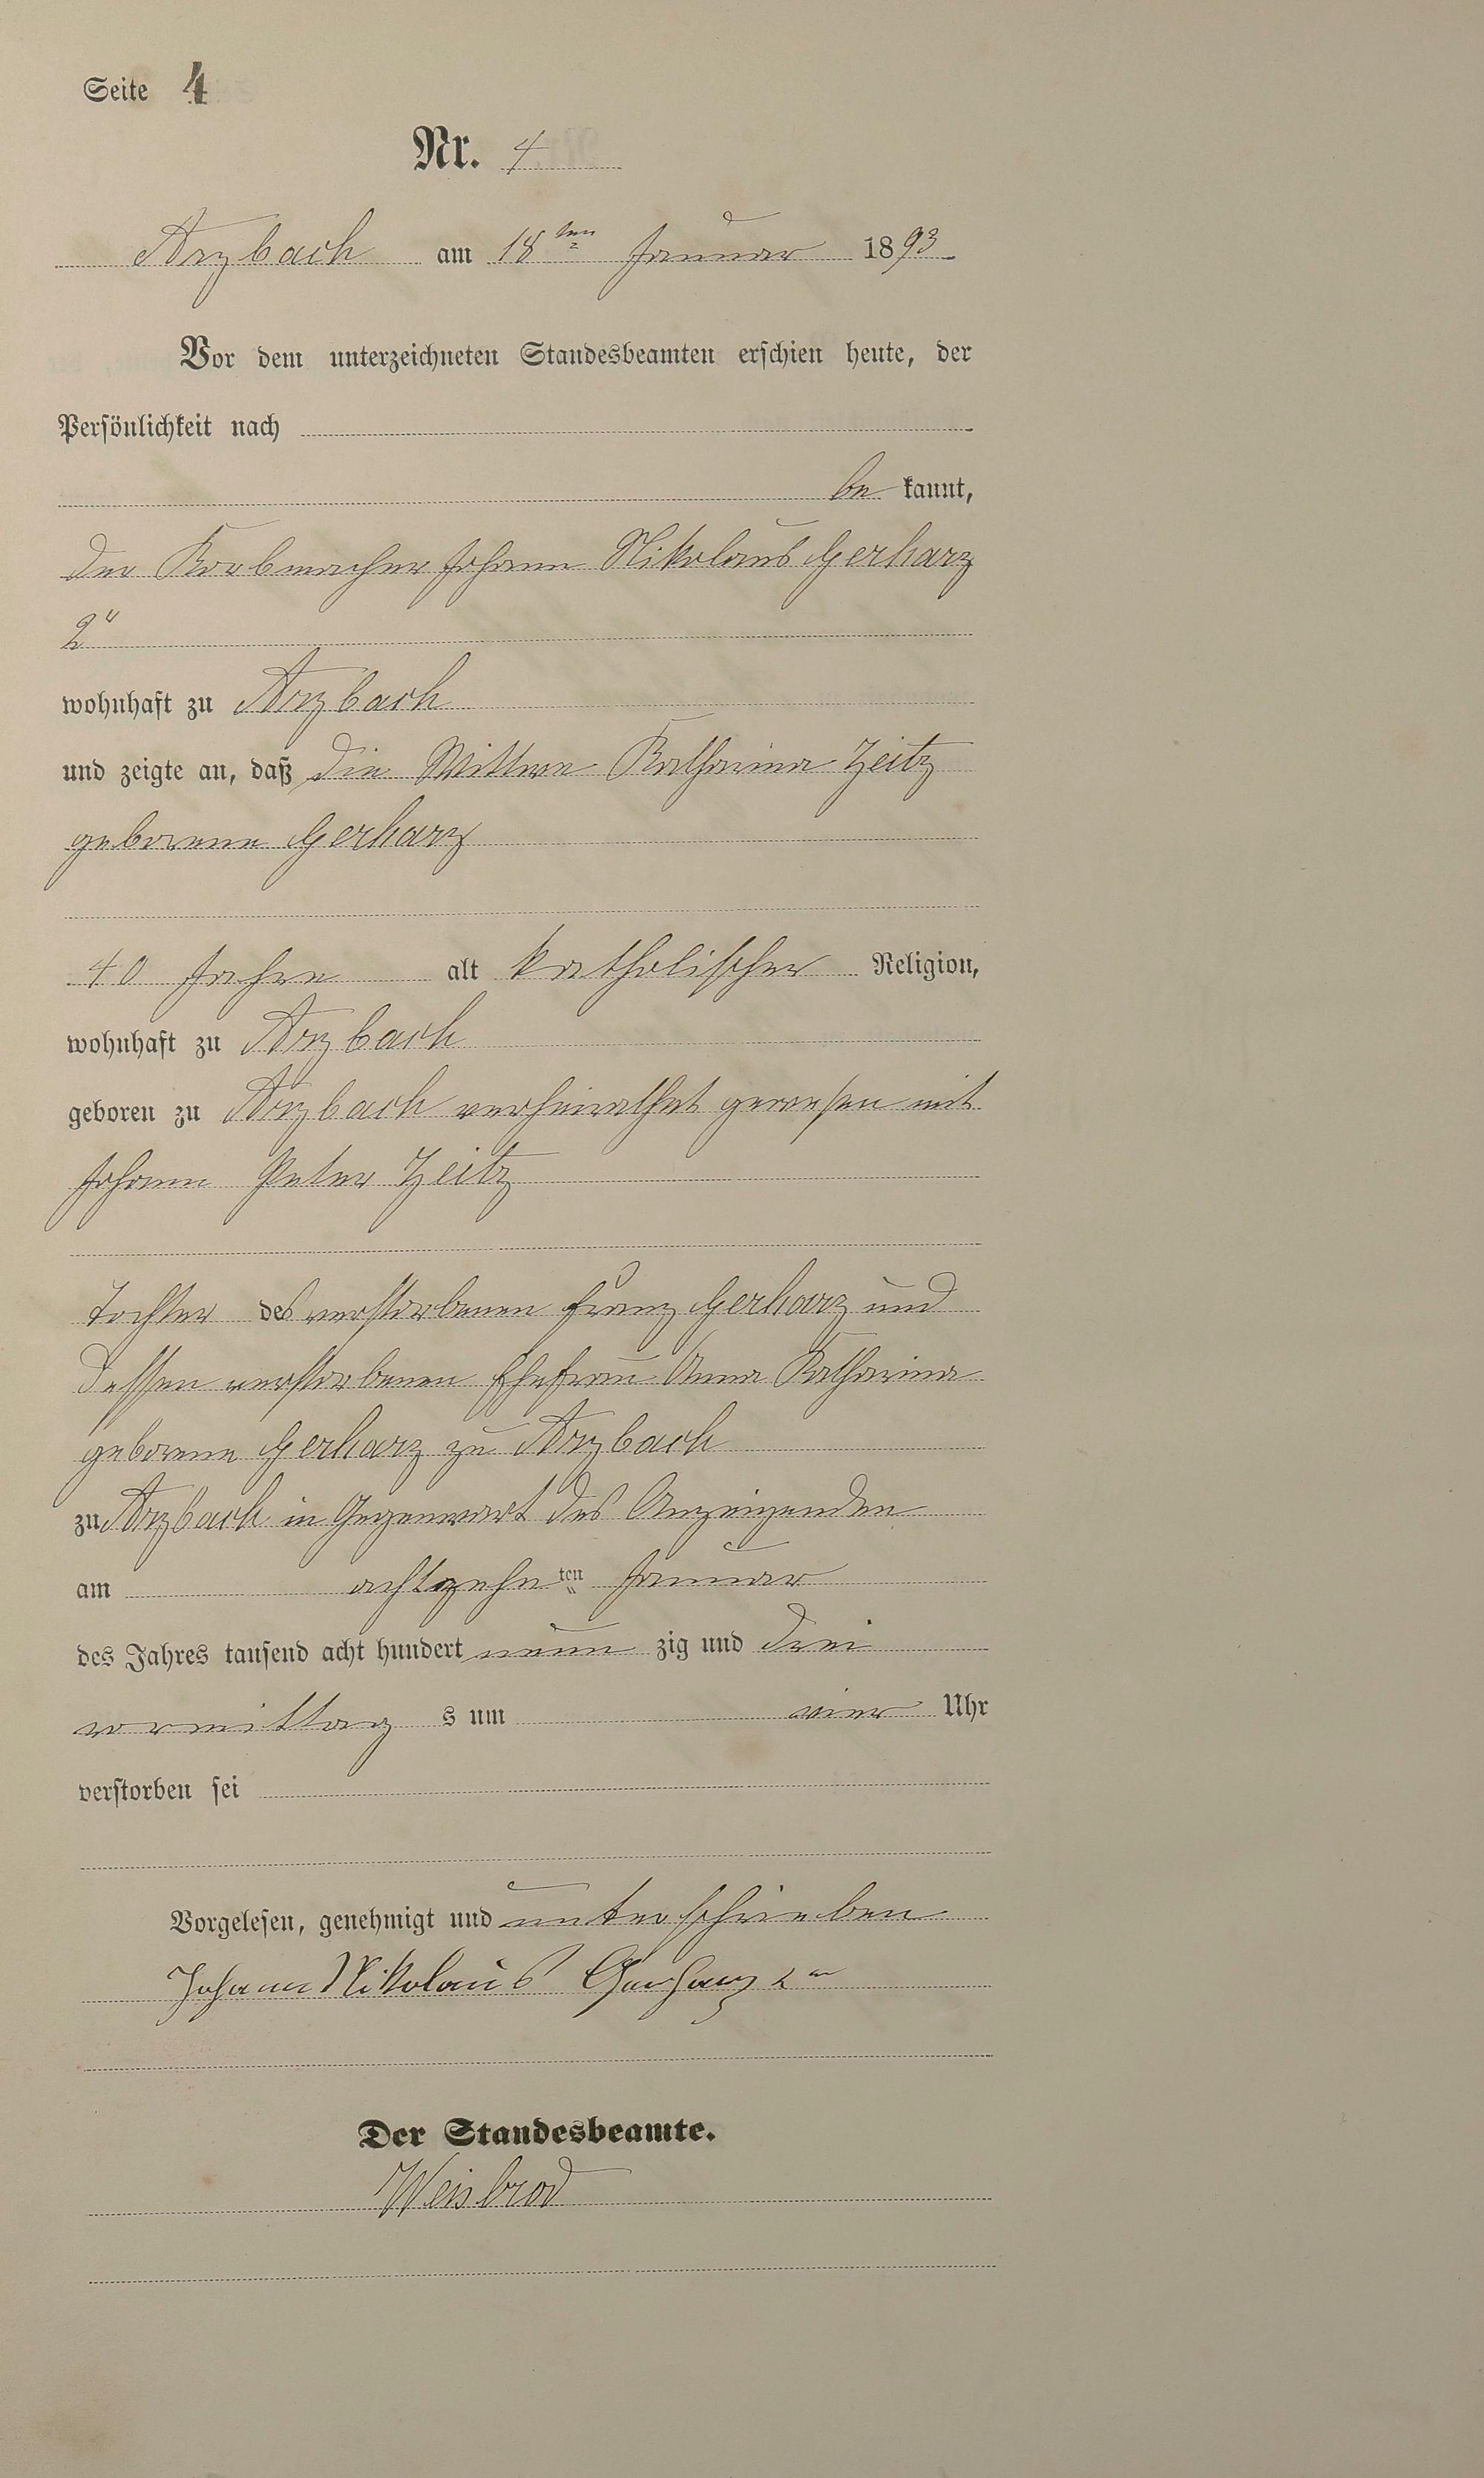 Seite 4
Nr. 4
Arzbach am 18ten Januar 1893
Vor dem unterzeichneten Standesbeamten erschien heute, der
Persönlichkeit nach
be kannt,
der Korbmacher Johann Nikolaus Gerharz
2"
wohnhaft zu Arzbach
und zeigte an, daß die Wittwe Katharina Zeitz
geborene Gerharz
40 Jahre alt katholischer Religion,
wohnhaft zu Arzbach
geboren zu Arzbach verheirathet gewesen mit
Johann Peter Zeitz
Tochter des verstorbenen Franz Gerharz und
dessen verstorbenen Ehefrau Anna Katharina
geborene Gerharz zu Arzbach
zu Arzbach in Gegenwart des Anzeigenden
am achtzehnten Januar
des Jahres tausend acht hundert neun zig und drei
vormittag s um vier Uhr
verstorben sei
Vorgelesen, genehmigt und unterschrieben
Johann Nikolaus Gerharz 2er
Der Standesbeamte.
Weisbrod